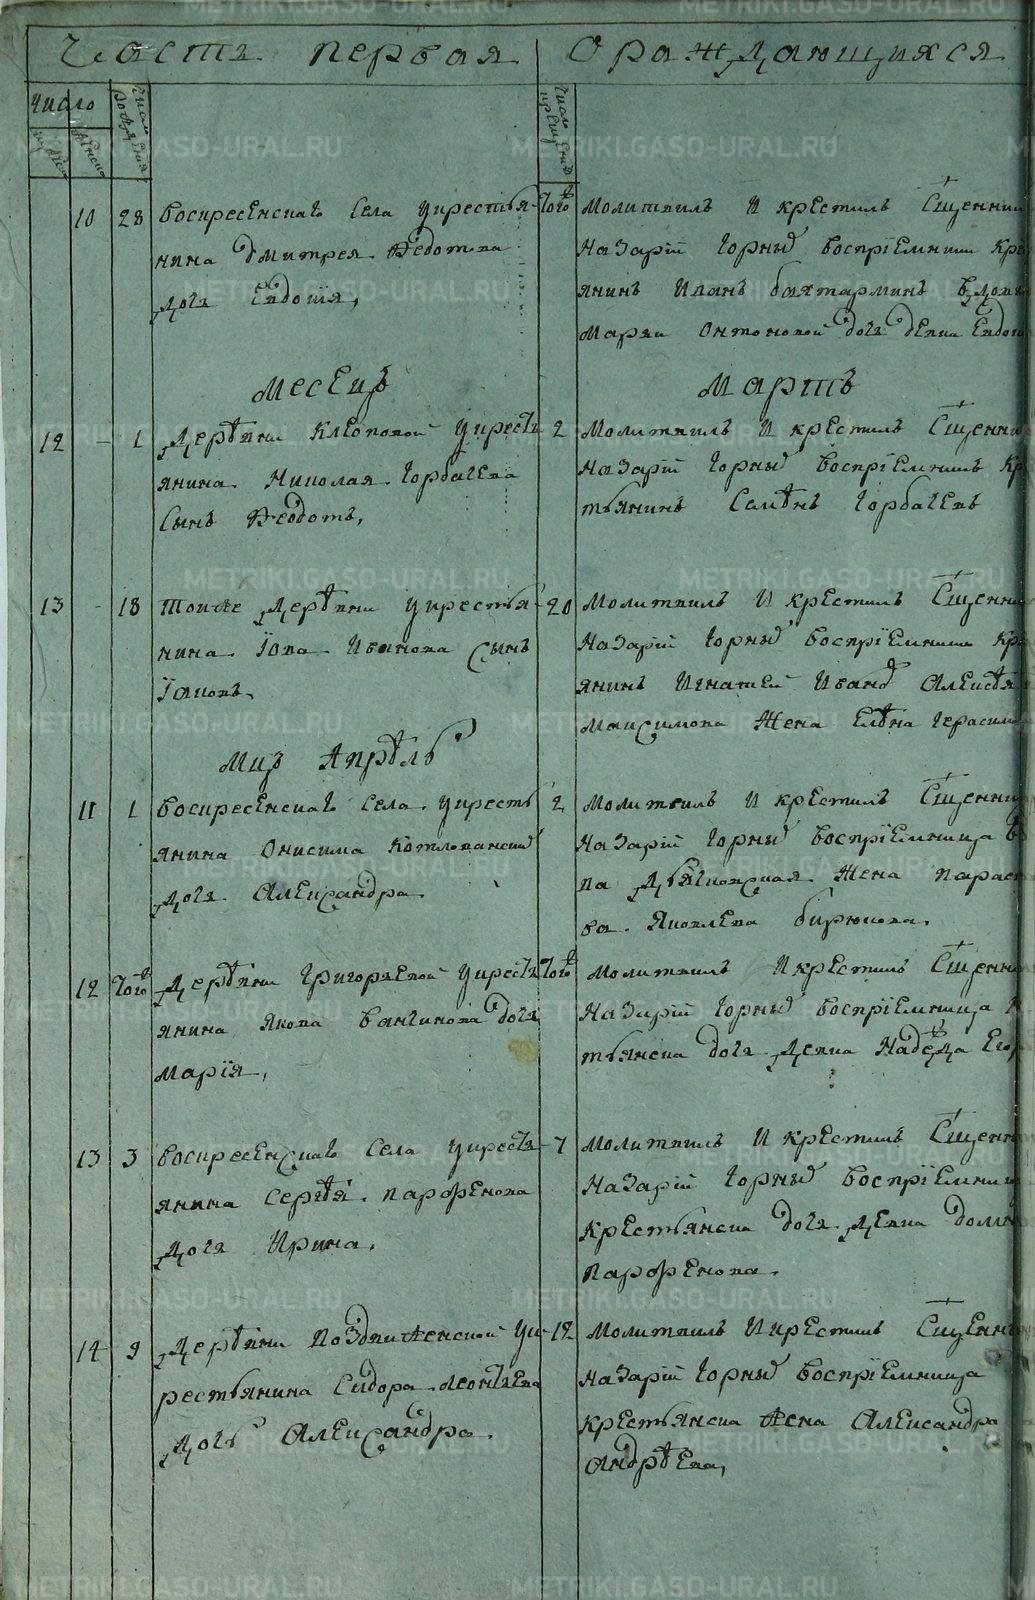 Часть первая
О раждающихся
Число
Число рождения
Число крещения
муж
женск
10 28 Воскресенскаго Села укрестья-
нина Дмитрея Федотова
дочь Евдокия,
Того
Молитвилъ И крестилъ Сщенник
Назарiй Горный воспрiемники Кре
янинъ Иванъ бахтарминъ
Марѳи Онтоновой дочь девка Евдок
Месецъ
Мартъ
12 - 1 Деревни Клепоповой укресть
янина Николая Горбачева
Сынъ Федотъ,
2 Молитвилъ И крестилъ Сщенник
Назарiй Горный воспрiемникъ Кр
тьянинъ Семѣнъ Горбачевъ
13 - 18 Тойже Деревни укрестья
нина Iова Иванова сынъ
Iаковъ
20 Молитвилъ И крестилъ Сщенни
Назарiй Горный воспрiемники Кр
янинъ Игнатей Ивано Алексѣя
Максимова Жена Елѣна Герасим
Мцъ Апрѣль
11 1 Воскресенскаго Села укресть
янина Онисима Котлованский
дочь Александра
2 Молитвилъ И крестилъ Сщенни
Назарiй Горный воспрiемница
ва Дьячковская Жена Параск
ва Яковлева бирюкова.
12 Того Деревни Григорьевой укресть
янина Якова Вангинова дочь
Марiя,
Того Молитвилъ И крестилъ Сщенни
Назарiй Горный воспрiемница К
тьянска дочь Девка Надежда Егор
13 3 Воскресенскаго Села укресть
янина Сергѣя Парфенова
дочь Ирина.
7 Молитвилъ И крестилъ Сщенни
Назарiй Горный воспрiемниц
Крестьянска дочь девка Домн
Парфенова.
14 9 Деревни Поздниженской ук
рестьянина Сидора Леонтьева
дочь Александра.
12 Молитвилъ И крестилъ Сщенн
Назарiй Горный воспрiемница
Крестьянска жена Александра
Андрѣева,
METRIKI.GASO-URAL.RU